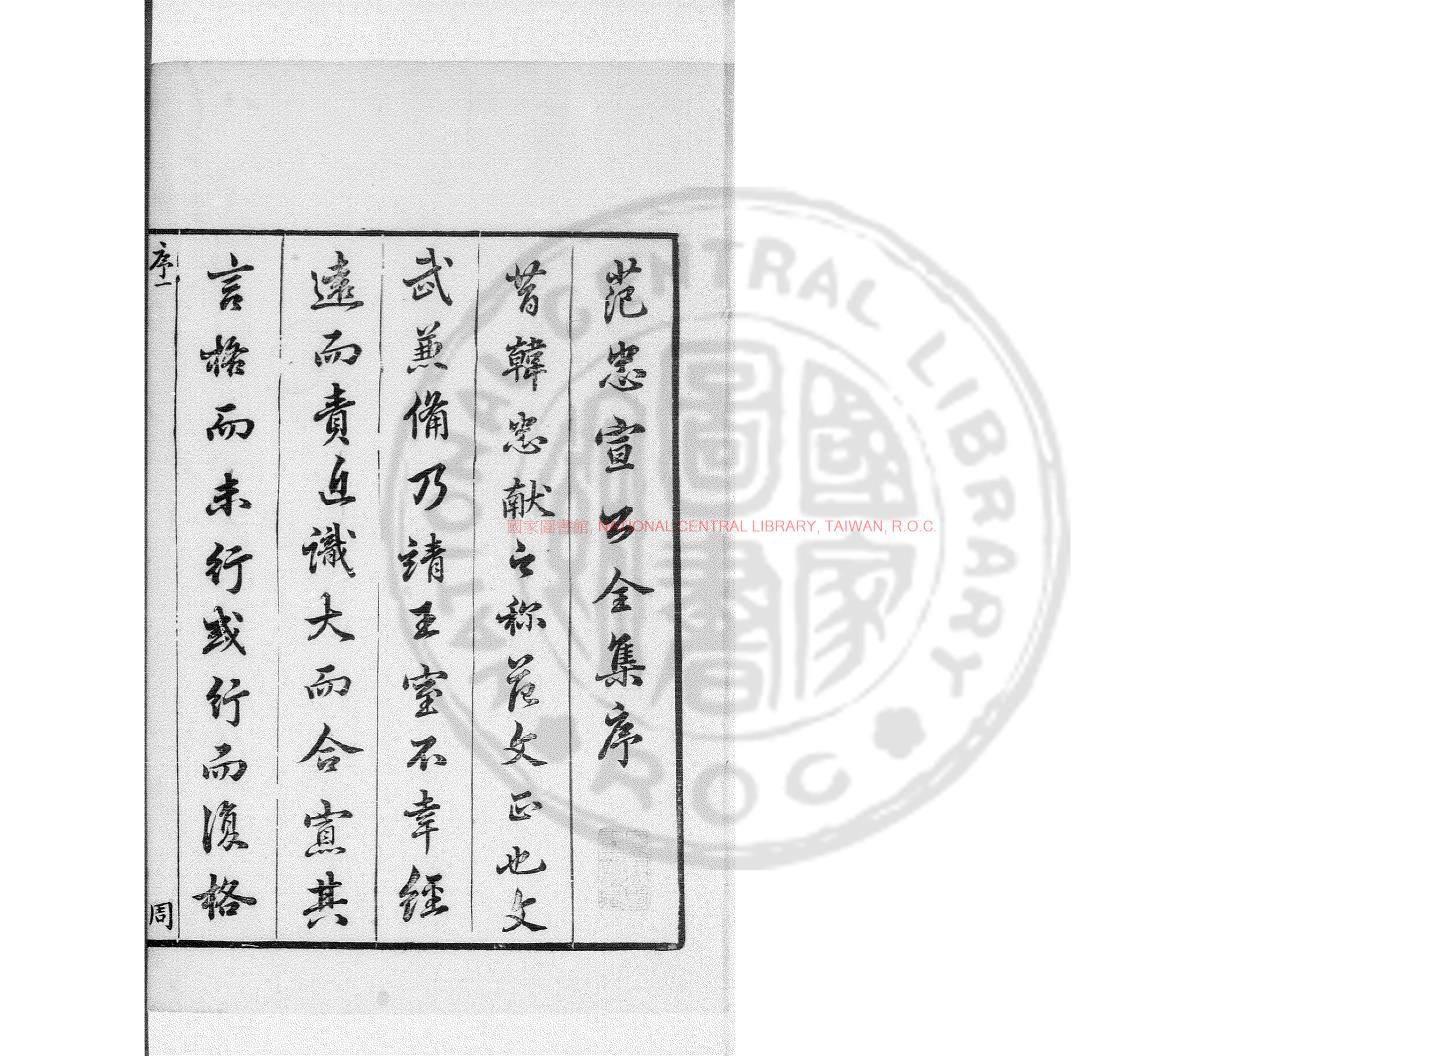 范忠宣公全集序
昔韓忠献之称范文正也文
武兼備乃靖王室不幸經
遠而責近識大而合寡其
言格而未行或行而復格
序一
周
國家圖書館, NATIONAL CENTRAL LIBRARY, TAIWAN, R.O.C.
NATIONAL CENTRAL LIBRARY
ROC
國家圖書